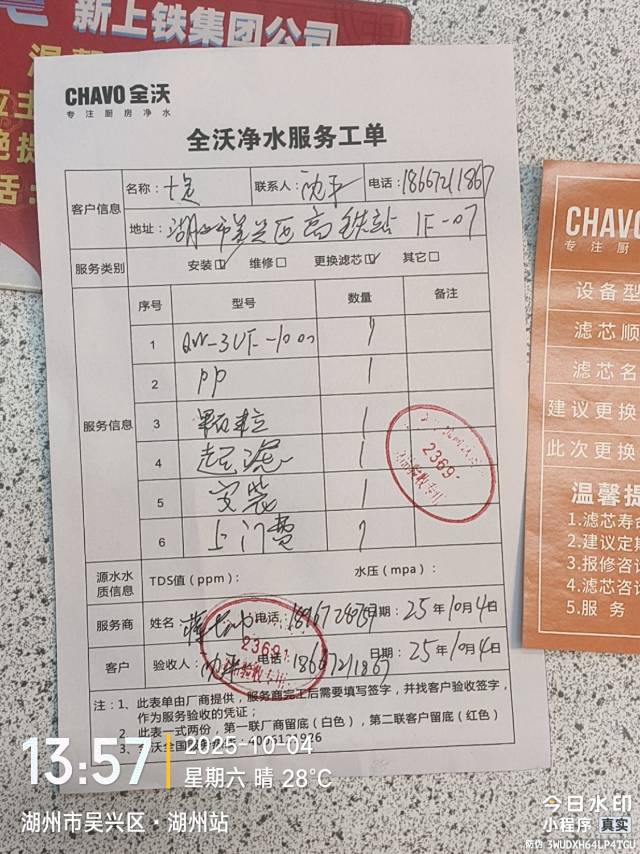 新上铁集团公司
CHAVO 全沃
专注厨房净水
全沃净水服务工单
客户信息
名称：
联系人：沈平
电话：18667211867
地址：湖州市吴兴区高铁站 1F-07
服务类别 安装☑ 维修□ 更换滤芯☑ 其它□
服务信息
序号 型号 数量 备注
1 QW-3UF-1000 1
2 PP 1
3 颗粒 1
4 超滤 1
5 安装 1
6 上门费 1
2369
源水水质信息
TDS值（ppm）： 水压（mpa）：
服务商 姓名 电话： 日期：25年10月4日
客户 验收人：沈平 电话 18667211867 日期：25年10月4日
2369
注：1、此表单由厂商提供，服务商完工后需要填写签字，并找客户验收签字，
作为服务验收的凭证；
2、此表一式两份，第一联厂商留底（白色），第二联客户留底（红色）
3、全沃全国服务热线：4006121926
CHAVO
专注厨
设备型
滤芯顺
滤芯名
建议更换
此次更换
温馨提
1.滤芯寿命
2.建议定期
3.报修咨询
4.滤芯咨询
5.服务
13:57
2025-10-04
星期六 晴 28℃
湖州市吴兴区·湖州站
今日水印
小程序 真实
防伪 3WUDXH64LP4TGU